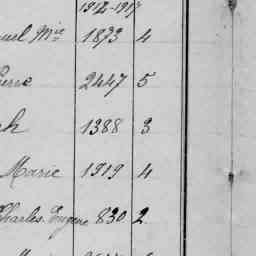 1912-1917
uel Mie 1873 4
2447 5
1388 3
Marie 1919 4
Charles Eugene 830 2